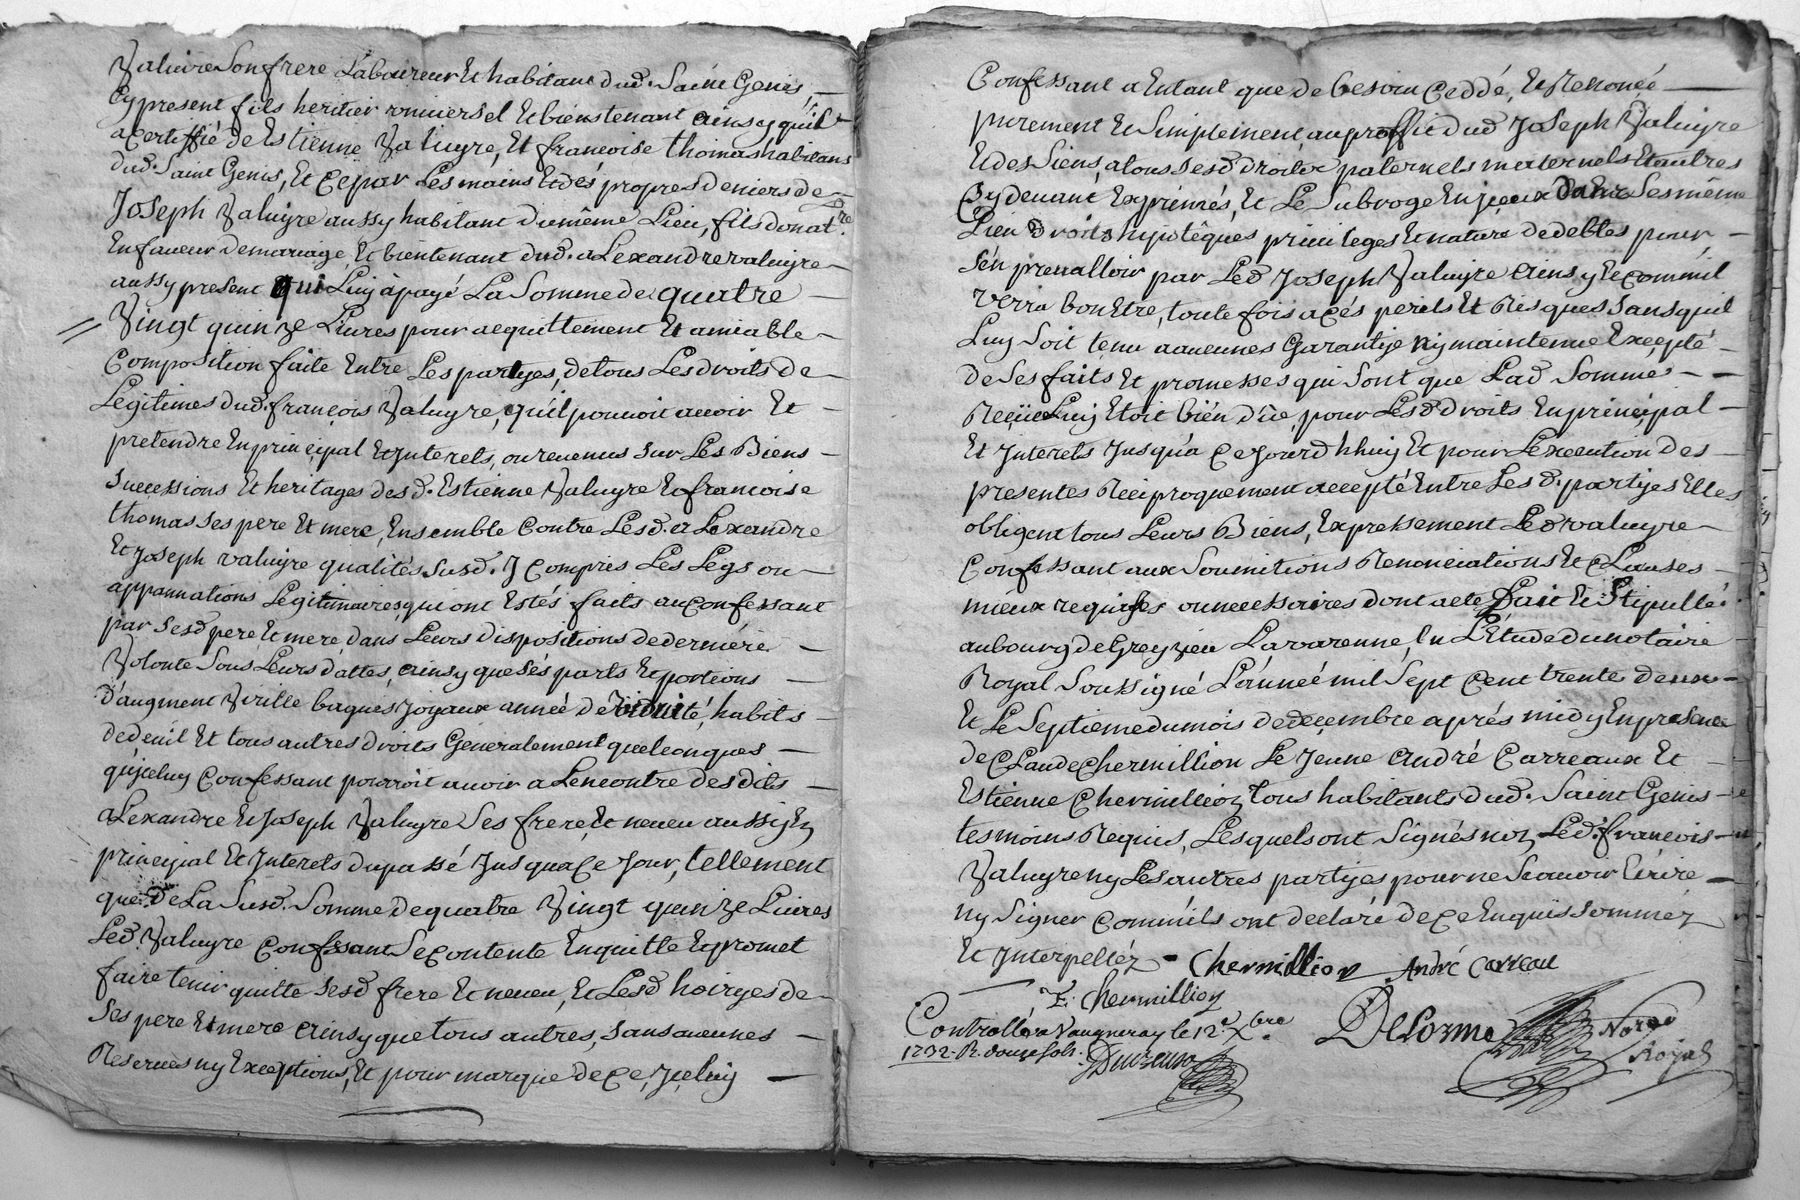 Valuÿre Son frere Laboureur Et habitant dud. Saint Genis, —
Cy present fils heritier universel Et bienstenant ainsy quil
a Certiffié de Estienne Valuyre, Et francoise thomas habitans
dud. Saint Genis, Et Ce par Les mains Et dés propres deniers de —
Joseph Valuyre aussy habitant du même Lieu, fils donat.re
En faveur de mariage, Et bientenant dud. aLexandre valuyre —
aussy present qui Luy à payé La Somme de quatre —
Vingt quinze Livres pour acquittement Et amiable —
Composition faite Entre Les partyes, de tous Les droits de —
Légitimes dud. françois Valuyre, qu'il pouvoit avoir Et —
pretendre En principal Et Interets, ou revenus sur Les Biens —
Successions Et heritages desd. Estienne Valuyre Et francoise
thomas ses pere Et mere, Ensemble Contre Lesd. aLexandre
Et Joseph valuyre qualités susd. J Compris Les Legs ou —
appannations Légitimaires qui ont Estés faits au Confessant
par Sesd pere Et mere, dans Leurs dispositions de derniére —
Volonte Sous Leurs dattes, ainsy que sés parts Et portions —
D'augment Virille bagues Joyaux année de Viduité, habits —
de deüil Et tous autres droits Generalement quelconques —
qu'jceluy Confessant pourroit avoir a Lencontre desdits —
aLexandre Et Joseph Valuyre Ses frere, Et neveu aussy En
principal Et Interets du passé Jusqua Ce Jour, tellement
que De La Susd. Somme de quatre Vingt quinze Livres
Led. Valuyre Confessant Se Contente En quitte Et promet
faire tenir quitte Sesd frere Et neveu, Et Lesd hoiryes de —
Ses pere Et mere ainsy que tous autres, sans aucunes —
Reserves ny Exceptions, Et pour marque de Ce, Jceluy —
Confessant a Entant que de besoin Ceddé, Et Renoncé —
purement Et Simplement, au proffit dud Joseph Valuyre
Et des Siens, a tous Sesd droits paternels maternels Et autres
Cy devant Exprimés, Et Le Subroge En jceux dans Ses même
Lieu Droits hypotêques privileges Et nature de debtes pour —
s'én prevalloir par Led Joseph Valuyre ainsy Et comm'il
Verra bon Etre, toute fois a Cés perils Et Risques Sans quil
Luy Soit tenu a aucunes Garantije ny maintenue Excepté —
de Ses faits Et promesses qui Sont que Lad Somme — —
Reçüe Luy Etoit bién düe, pour Lesd droits En principal —
Et Interets Jusqu'a Ce Jourd'hhuy Et pour L'execution des —
presentes Reciproquement accepté Entre Lesd. partyes Elles
obligent tous Leurs Biens, Expressement Led valuyre —
Confessant aux Soumitions Renonciations Et Clauses —
mieux requises ou necessaires dont acte fait Et Stipullé
au bourg de Grezzieu Lavarenne, En L'Etude du notaire
Royal Soussigné L'année mil Sept Cent trente deux —
Et Le Septieme du mois de decembre aprés midy En presence
de Claude Chermillion Le Jeune André Carreaux Et
Estienne Chermillion tous habitants dud. Saint Genis —
tesmoins Requis, Lesquels ont Signés non Led. francois —
Valuyre ny Les autres partyes pour ne Scavoir Ecrire —
ny Signer Comm'ils ont declaré de Ce Enquis sommez
Et Interpellez — Chermillion André Carreau
E. Chermillion
Controllé a Vaugneray le 12e Xbre Delorme No.re
1732 R. douze sols. Royal